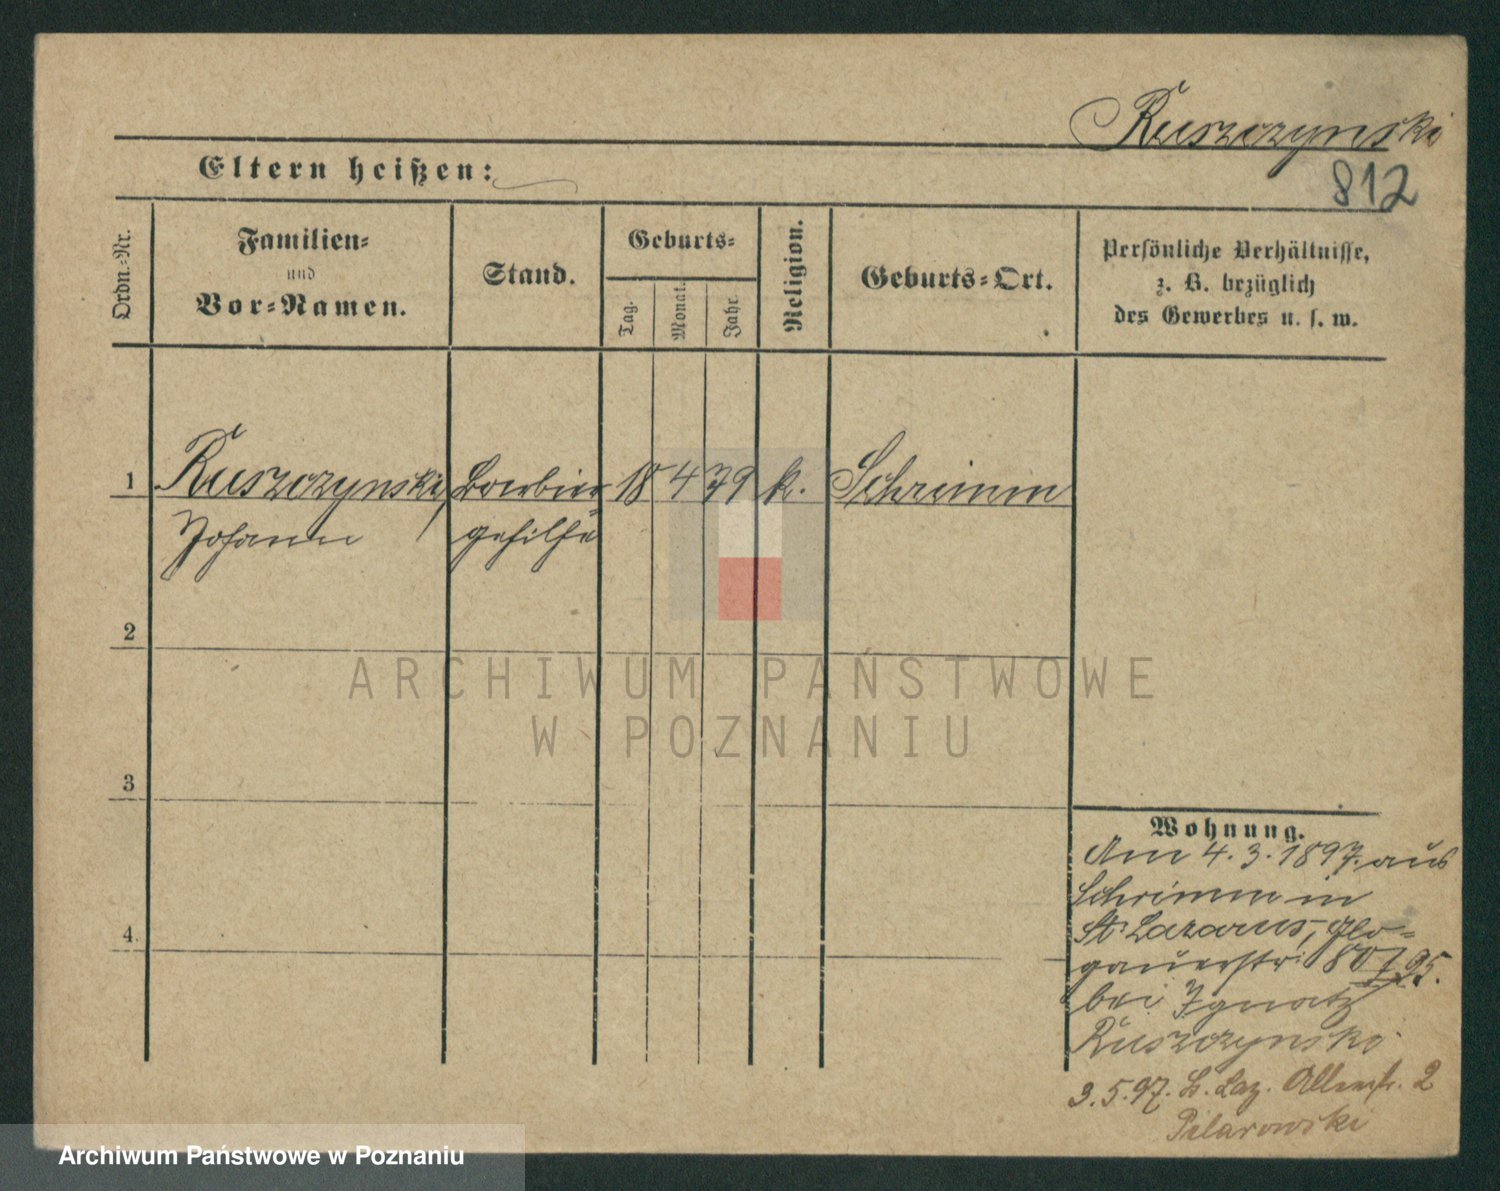 Ruszczynski
812
Eltern heißen:
Ordn.-Nr.
Familien-
und
Vor-Namen.
Stand.
Geburts-
Tag.
Monat.
Jahr.
Religion.
Geburts-Ort.
Persönliche Verhältnisse,
z. B. bezüglich
des Gewerbes u. s. w.
1 Ruszczynski, Barbier 18 4 79 k. Schrimm
Johann gehilfe
2
3
4.
Wohnung.
Am 4.3.1897. aus
Schrimm in
St Lazarus, Glo-
gauerstr. 80
bei Ignatz
Ruszczynski
3.5.97. Laz. 2
Pilarowski
ARCHIWUM PAŃSTWOWE
W POZNANIU
Archiwum Państwowe w Poznaniu